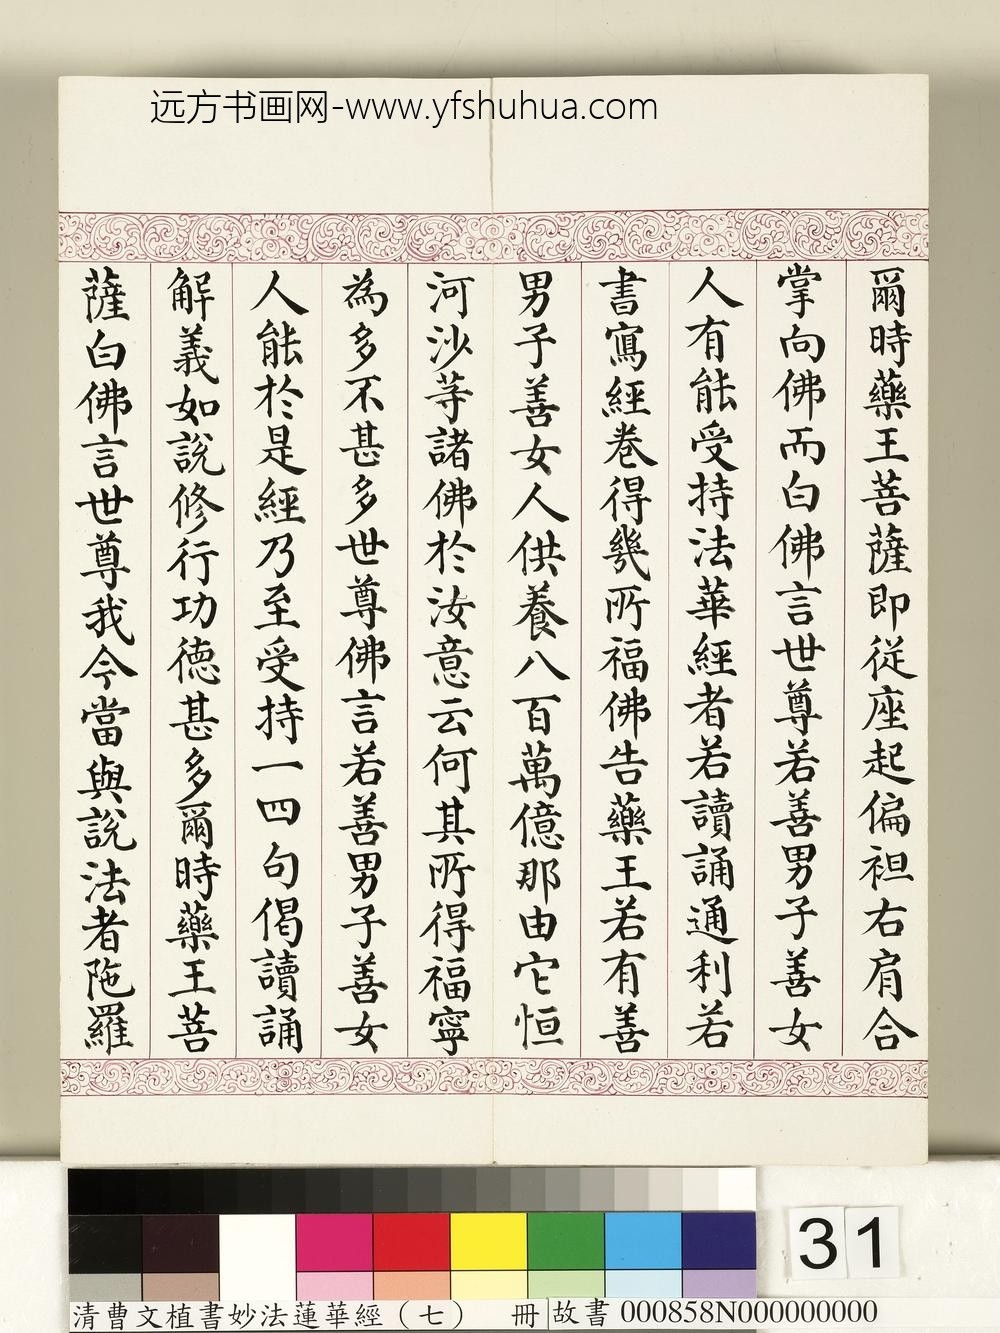 远方书画网-www.yfshuhua.com
爾時藥王菩薩即從座起偏袒右肩合
掌向佛而白佛言世尊若善男子善女
人有能受持法華經者若讀誦通利若
書寫經卷得幾所福佛告藥王若有善
男子善女人供養八百萬億那由它恒
河沙等諸佛於汝意云何其所得福寧
為多不甚多世尊佛言若善男子善女
人能於是經乃至受持一四句偈讀誦
解義如說修行功德甚多爾時藥王菩
薩白佛言世尊我今當與說法者陁羅
31
清曹文植書妙法蓮華經（七） 冊 故書 000858N000000000